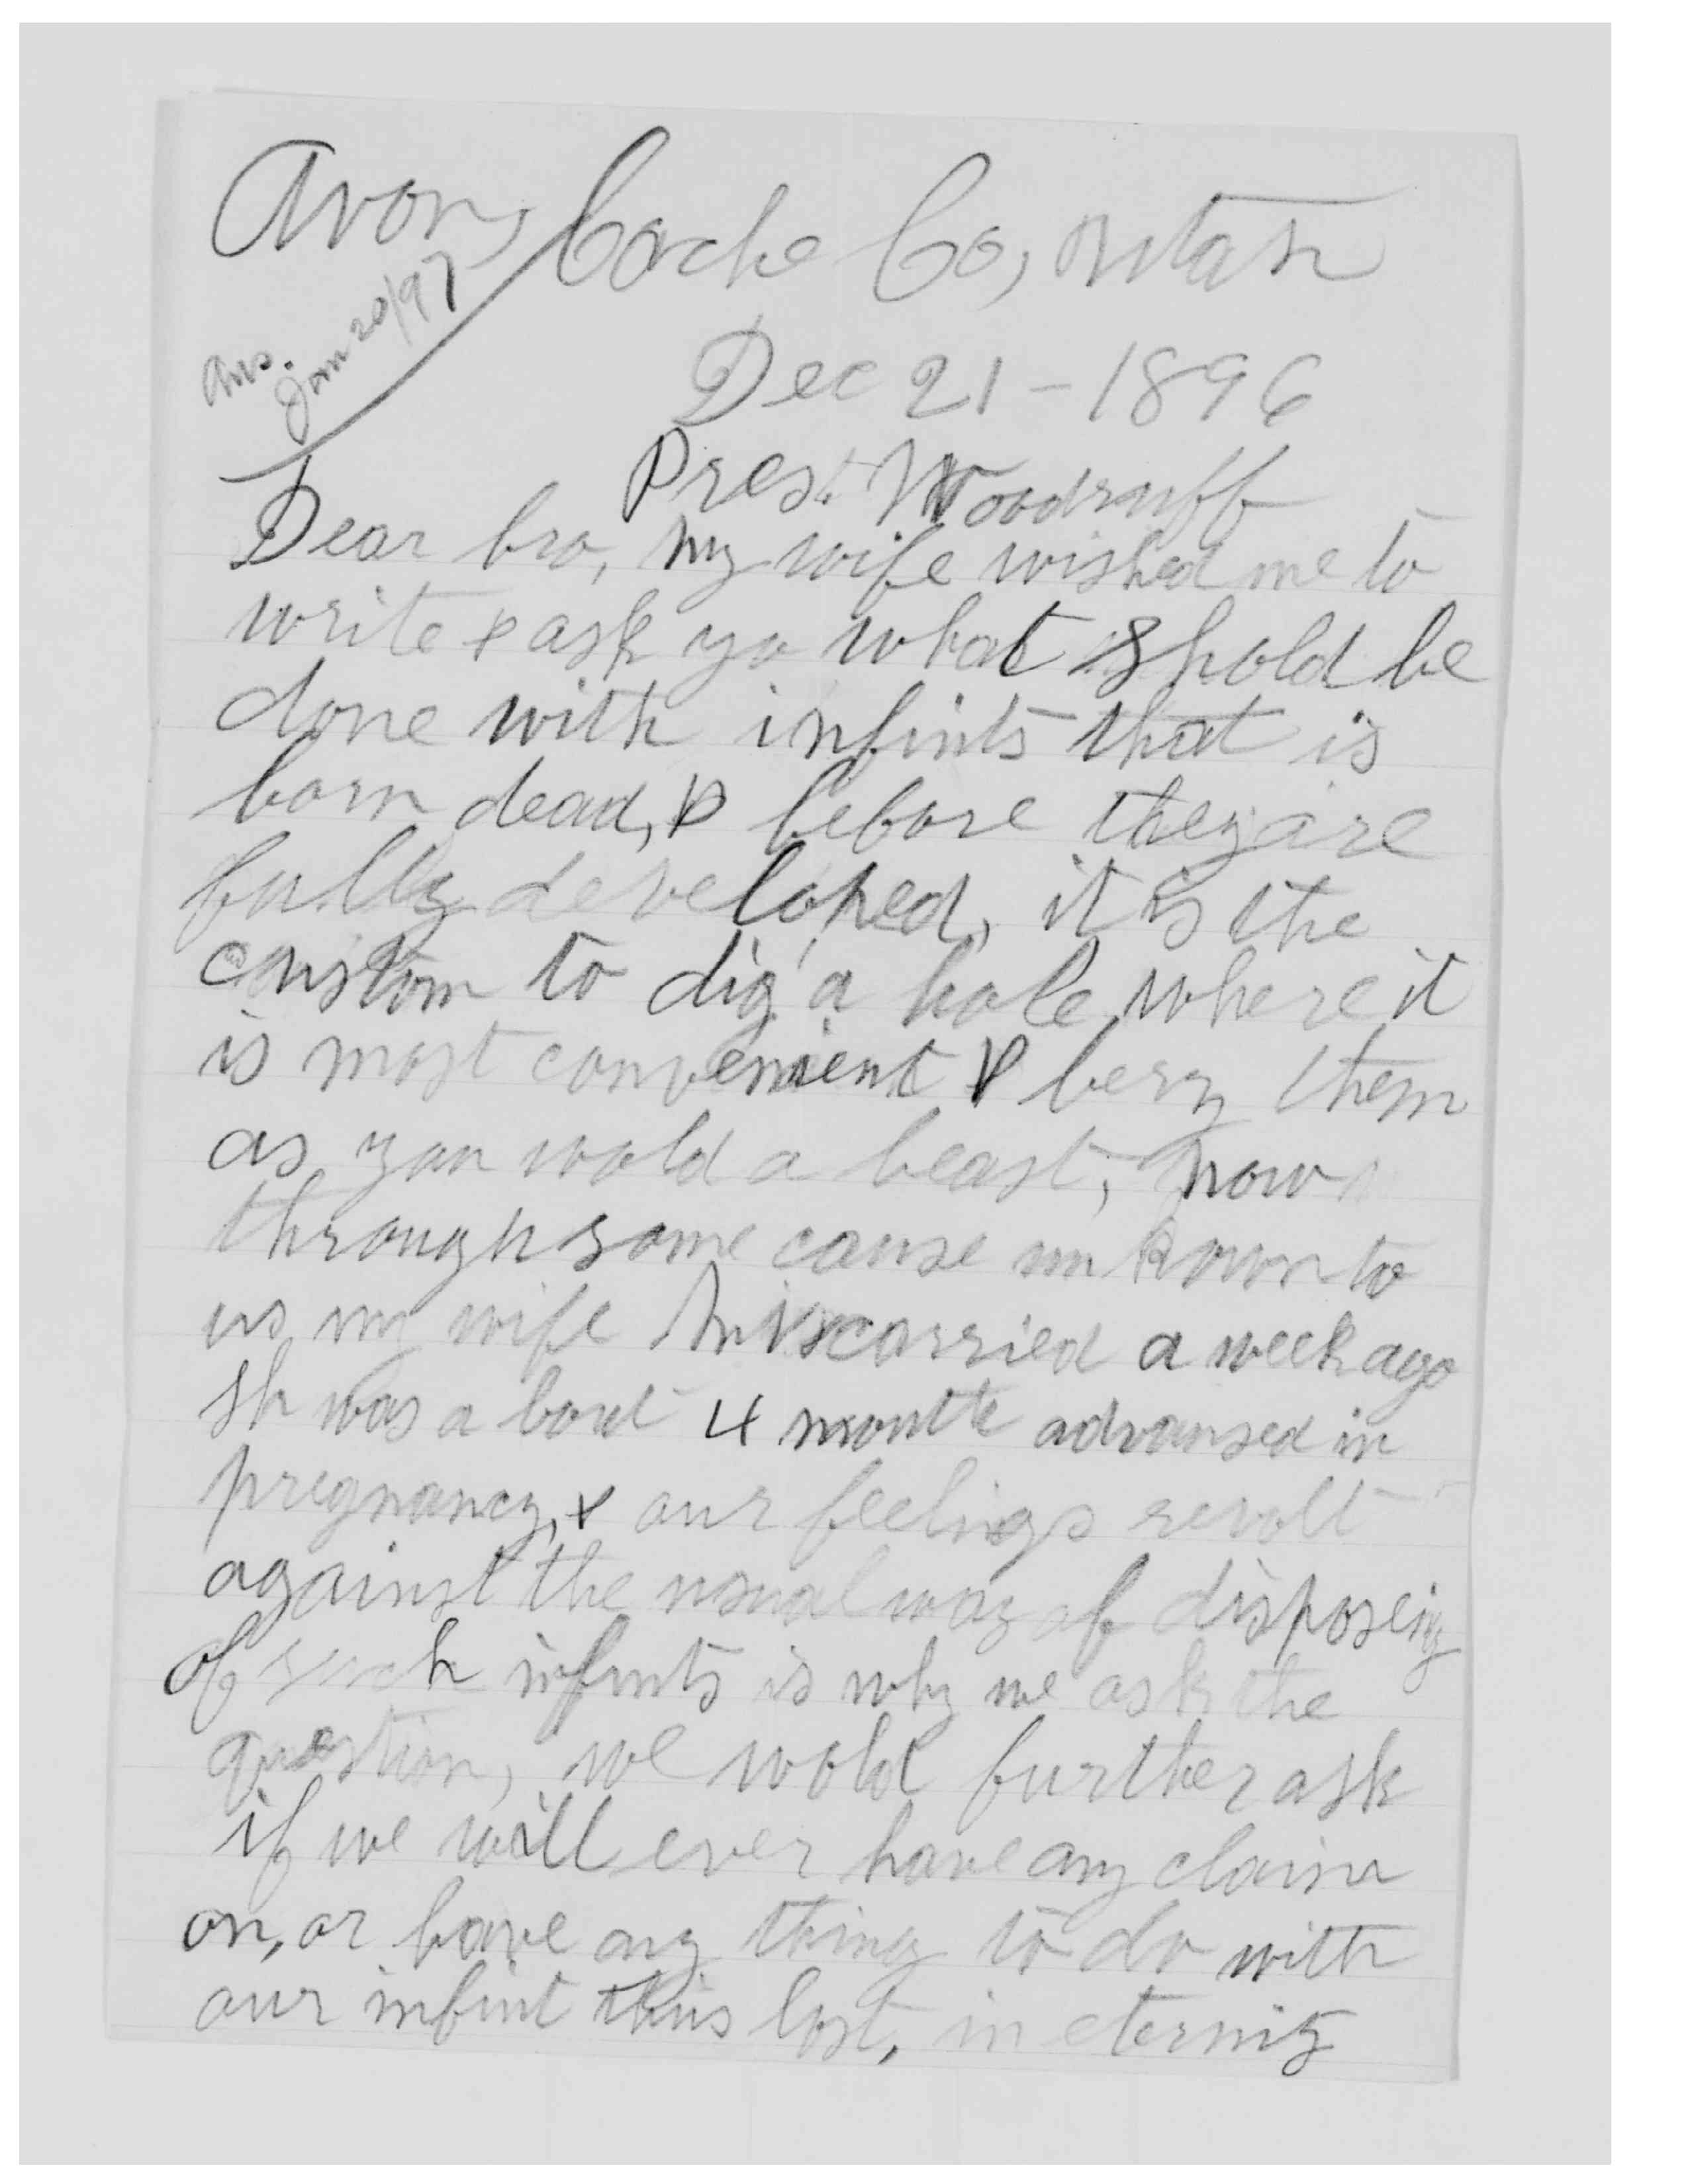 Avon, Cache Co, Utah
Ans.
Jan 20/97
Dec 21 - 1896
Prest. Woodruff
Dear bro, my wife wished me to
write & ask yo what shold be
done with infints that is
born dead, & before they are
fully developed, it is the
custom to dig a hole where it
is most convenient & bery them
as you wold a beast, now
through some cause unknown to
us my wife miscarried a week ago
sh was a bout 4 month advansed in
pregnancy, & our feelings revolt
against the usual way of disposeing
of such infints is why we ask the
question, we wold further ask
if we will ever have any claim
on, or have any thing to do with
our infint thus lost, in eternity